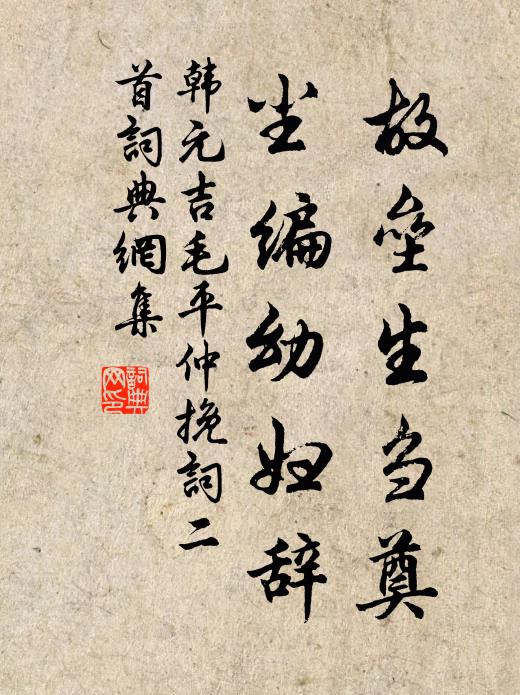 故垒生刍奠
尘编幼妇辞
韩元吉毛平仲挽詞二
首詞典網集
詞典
网印